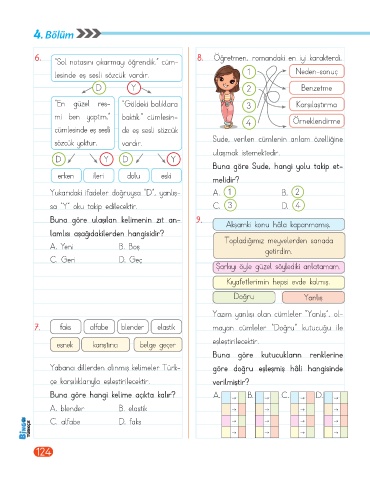 4. Bölüm
6. "Sol notasını çıkarmayı öğrendik." cüm-
lesinde eş sesli sözcük vardır.
D Y
"En güzel res-
mi ben yaptım."
cümlesinde eş sesli
sözcük yoktur.
"Göldeki balıklara
baktık." cümlesin-
de eş sesli sözcük
vardır.
D Y D Y
erken ileri dolu eski
Yukarıdaki ifadeler doğruysa "D", yanlış-
sa "Y" oku takip edilecektir.
Buna göre ulaşılan kelimenin zıt an-
lamlısı aşağıdakilerden hangisidir?
A. Yeni B. Boş
C. Geri D. Geç
7. faks alfabe blender elastik
esnek karıştırıcı belge geçer
Yabancı dillerden alınmış kelimeler Türk-
çe karşılıklarıyla eşleştirilecektir.
Buna göre hangi kelime açıkta kalır?
A. blender B. elastik
C. alfabe D. faks
8. Öğretmen, romandaki en iyi karakterdi.
1 Neden-sonuç
2 Benzetme
3 Karşılaştırma
4 Örneklendirme
Sude, verilen cümlenin anlam özelliğine
ulaşmak istemektedir.
Buna göre Sude, hangi yolu takip et-
melidir?
A. 1 B. 2
C. 3 D. 4
9. Akşamki konu hâla kapanmamış.
Topladığımız meyvelerden sanada
getirdim.
Şarkıyı öyle güzel söylediki anlatamam.
Kıyafetlerimin hepsi evde kalmış.
Doğru Yanlış
Yazım yanlışı olan cümleler "Yanlış", ol-
mayan cümleler "Doğru" kutucuğu ile
eşleştirilecektir.
Buna göre kutucukların renklerine
göre doğru eşleşmiş hâli hangisinde
verilmiştir?
A. B. C. D.
124